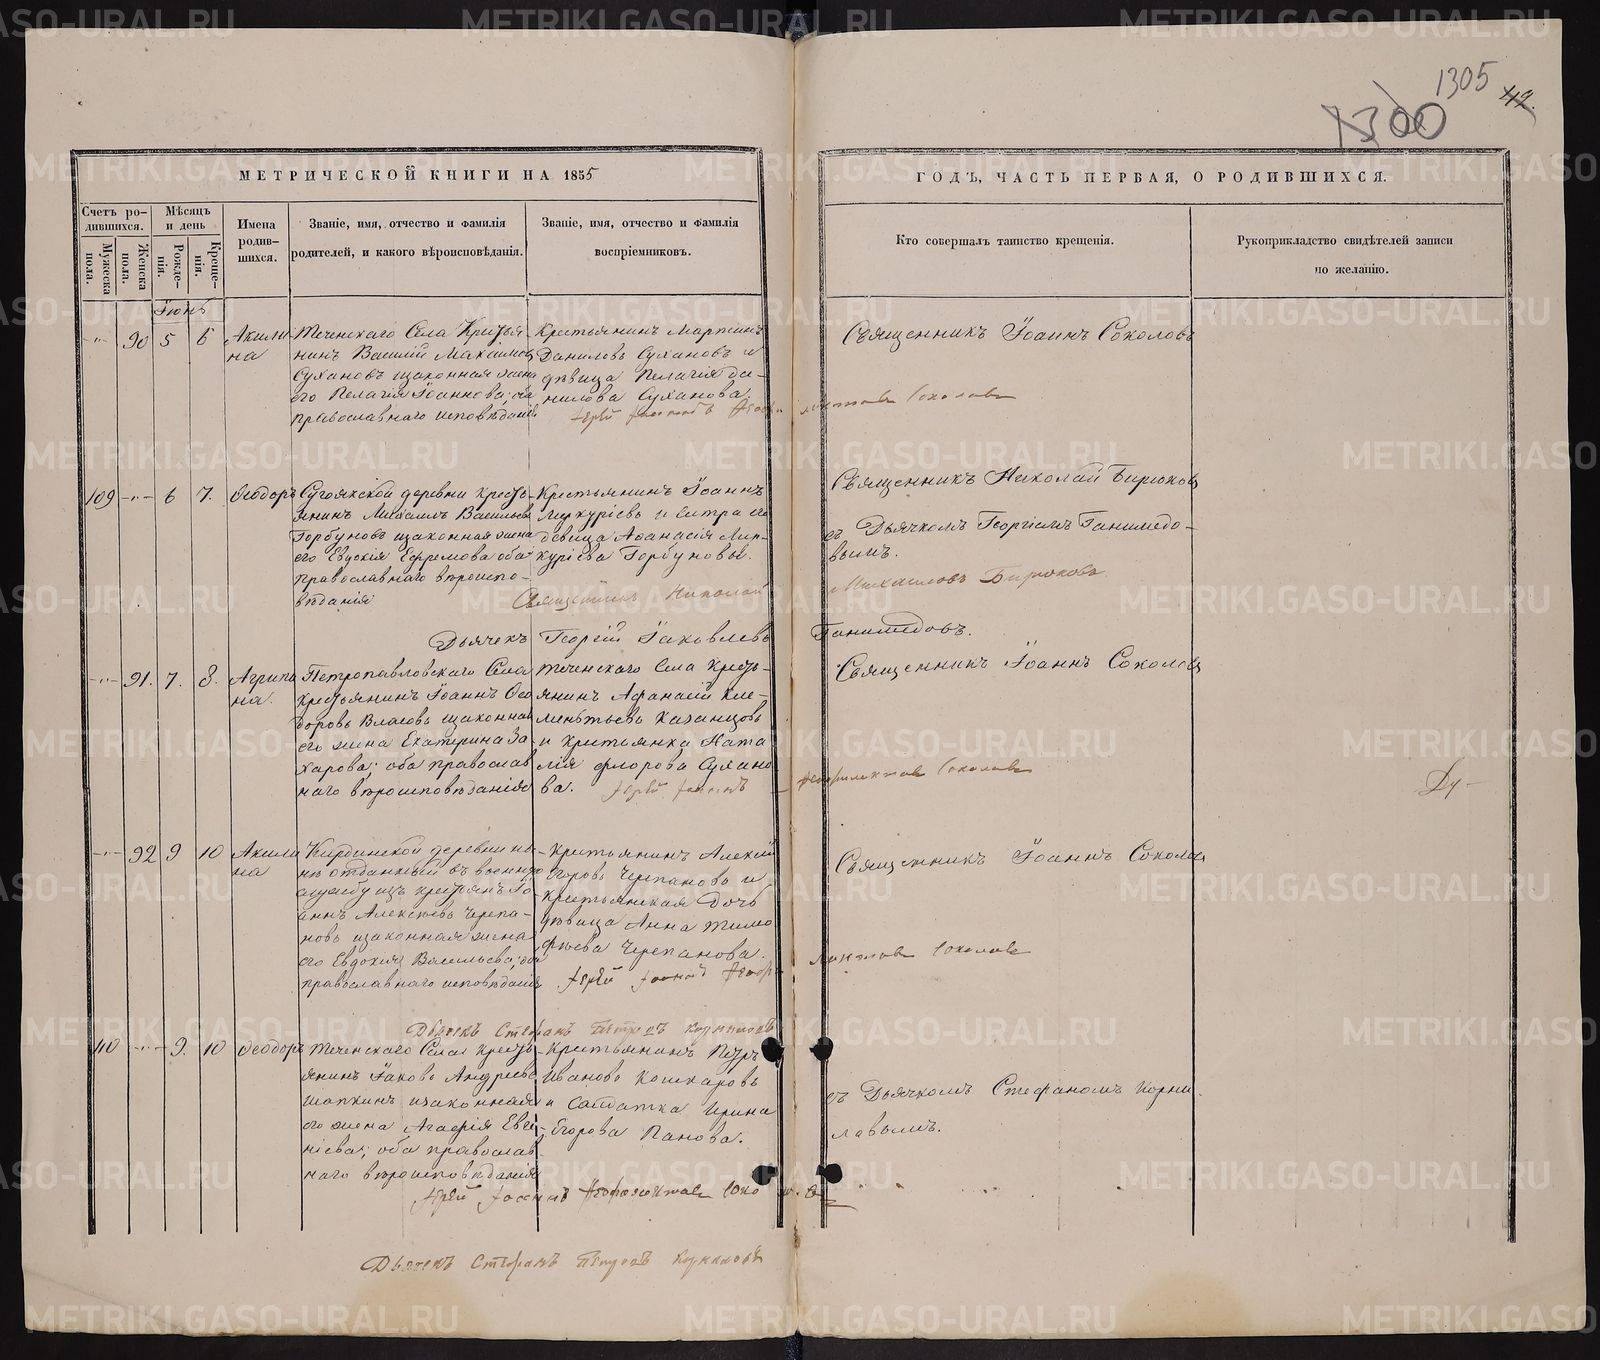 1305
42.
1300
МЕТРИЧЕСКОЙ КНИГИ НА 1855
ГОДЪ, ЧАСТЬ ПЕРВАЯ, О РОДИВШИХСЯ.
Счетъ ро-
дившихся.
Мужеска
пола.
Женска
пола.
Мѣсяцъ
и день
Рожде-
нія.
Креще-
нія.
Имена
родив-
шихся.
Званіе, имя, отчество и фамилія
родителей, и какого вѣроисповѣданія.
Званіе, имя, отчество и фамилія
воспріемниковъ.
Кто совершалъ таинство крещенія.
Рукоприкладство свидѣтелей записи
по желанію.
Іюнь
90 5 6
Акили
на
Теченскаго Села Крестья
нинъ Василій Максимов
Сухановъ изаконная жена
его Пелагія Іоаннова; оба
православнаго исповѣданія
Крестьянинъ Мартинъ
Даниловъ Сухановъ и
дѣвица Пелагія Да-
нилова Суханова.
Священникъ Іоаннъ Соколовъ
Іерей Іоаннъ Феофилактовъ Соколовъ
109 6 7.
Ѳеодоръ
Сугоякской деревни кресть-
янинъ Михаилъ Васильевъ
Горбуновъ изаконная жена
его Евдокія Ефремова оба
православнаго вѣроиспо-
вѣданія
Крестьянинъ Іоаннъ
Меркуріевъ и сестра его
девица Афанасія Мер-
куріева Горбуновы.
Священникъ Николай Бирюковъ
съ Дьячкомъ Георгіемъ Ганимедо-
вымъ.
Священникъ Николай Михаиловъ Бирюковъ
Дьячекъ Георгій Іаковлевъ Ганимедовъ.
91. 7. 8.
Агрипи
на.
Петропавловскаго Села
крестьянинъ Іоаннъ Ѳео
доровъ Власовъ изаконная
его жена Екатерина За-
харова; оба православ
наго вѣроисповѣданія
Теченскаго Села Кресть-
янинъ Афанасій Кле-
ментьевъ Казанцовъ
и крестьянка Ната
лія Флорова Сухано
ва.
Священникъ Іоаннъ Соколовъ
Іерей Іоаннъ Феофилактовъ Соколовъ
92 9 10
Акили
на
Кирдинской деревни
отданный въ военную
службу изъ крестьянъ Іо
аннъ Алексѣевъ Черепа-
новъ изаконная жена
его Евдокія Васильева; оба
православнаго исповѣданія
Крестьянинъ Алексій
Егоровъ Черепановъ и
крестьянская дочь
дѣвица Анна Тимо
фѣева Черепанова.
Священникъ Іоаннъ Соколовъ
Іерей Іоаннъ Феофилактовъ Соколовъ
Дьячекъ Стефанъ Петровъ Корниловъ
110 9. 10
Ѳеодоръ
Теченскаго Села кресть-
янинъ Іаковъ Андреевъ
Шапкинъ изаконная
его жена Агафія Евге
ніева; оба православ
наго вѣроисповѣданія
Крестьянинъ Петръ
Ивановъ Кошкаровъ
и Салдатка Ирина
Егорова Панова.
съ Дьячкомъ Стефаномъ Корни
ловымъ.
Іерей Іоаннъ Феофилактовъ Соколовъ
Дьячекъ Стефанъ Петровъ Корниловъ
METRIKI.GASO-URAL.RU